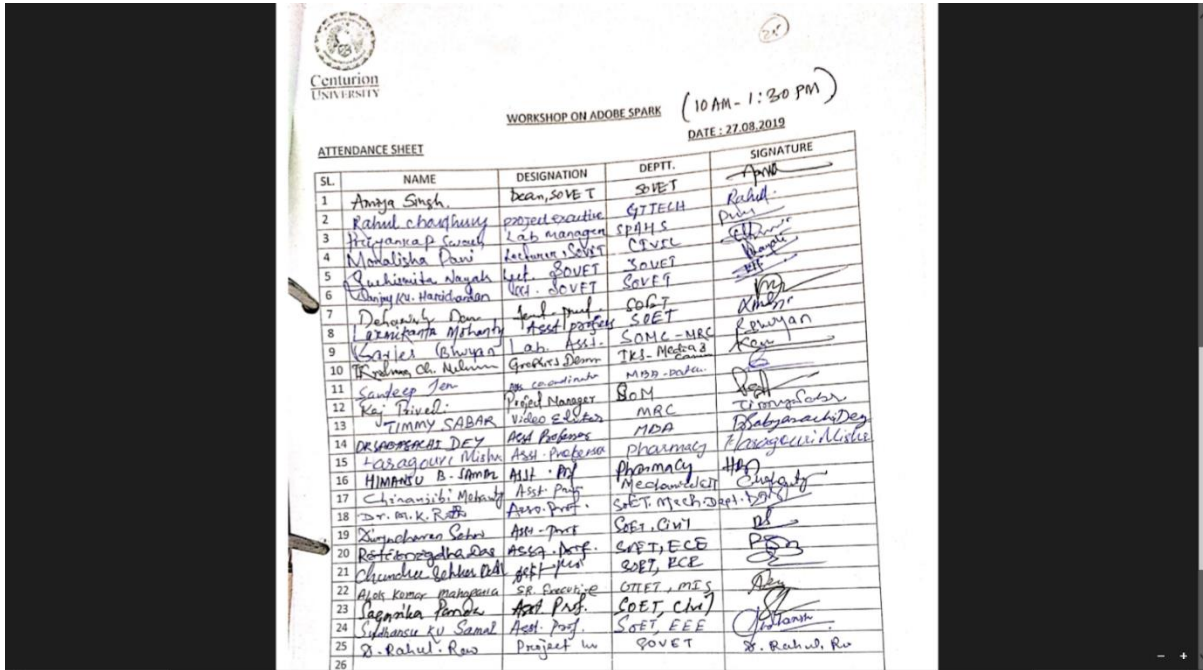 25
Centurion
UNIVERSITY
WORKSHOP ON ADOBE SPARK (10 AM - 1:30 PM)
DATE : 27.08.2019
ATTENDANCE SHEET
SL. NAME DESIGNATION DEPTT. SIGNATURE
1 Amiya Singh. Dean, SOVET SOVET
2 Rahul choudhury project executive GTTECH Rahul.
3 Lab manager SPAHS
4 Monalisha Dani Lecturer, SOVET CIVIL
5 Suchismita Nayak Lect. SOVET SOVET
6 Sanjay Ku. Harichandan Lect. SOVET SOVET
7 Asst. prof SOET
8 Laxmikanta Mohanty Asst profess SOET
9 Bhuyan Lab. Asst. SOMC-MRC
10 Krishna Ch. Graphics TKS-Media &
11 Sandeep Jen co-ordinator MBA-
12 Raj Trivedi Project Manager SoM
13 TIMMY SABAR Video Editor MRC Timmy Sabar
14 DR SABYASACHI DEY Asst Professor MBA Sabyasachi Dey
15 Hasagouri Mishra Asst. Professor Pharmacy Hasagouri Mishra
16 HIMANSU B. SAMAL Asst. Prof Pharmacy
17 Chiranjibi Mohanty Asst. Prof Mechanical
18 Dr. M. K. Asso. Prof. SoET. Mech. Dept.
19 Asst. Prof SoET. Civil
20 Das Asst. Prof. SoET, ECE
21 Chandra Sekhar Asst. Prof SOET, ECE
22 Alok Kumar Mahapatra SR. Executive GTET, MIS
23 Sagarika Panda Asst Prof. SOET, Civil
24 Sudhansu Ku Samal Asst. Prof. SoET, EEE
25 S. Rahul. Rao Project SOVET S. Rahul. Ra
26